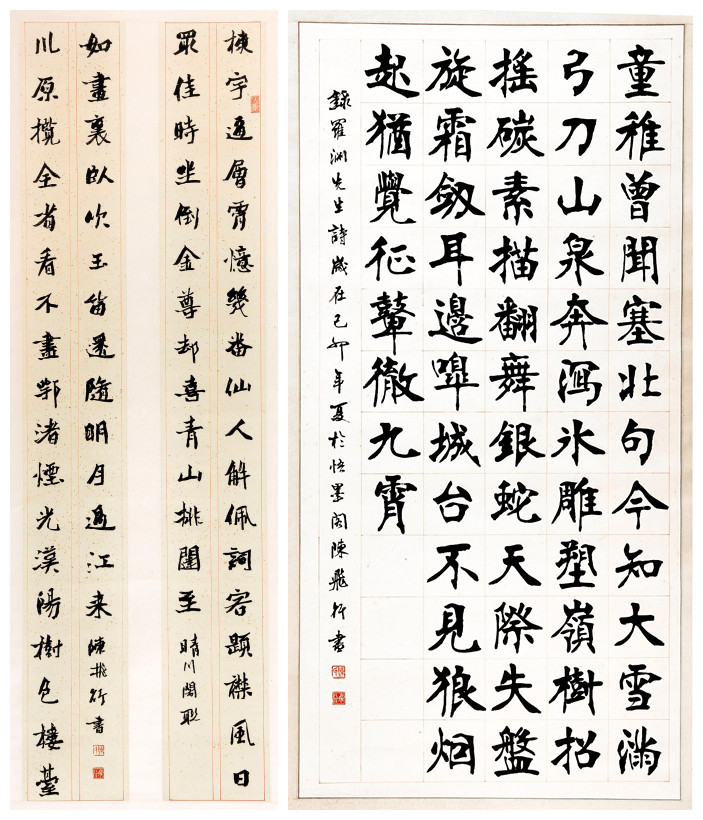 棟宇逼層霄憶幾番仙人解佩詞客題襟風日
最佳時坐倒金尊却喜青山排闥至
晴川閣聯
川原攬全省看不盡鄂渚煙光漢陽樹色樓臺
如畫裏臥吹玉笛還隨明月過江来
陳飛行書
童稚曾聞塞北句今知大雪滿
弓刀山泉奔瀉冰雕塑嶺樹招
搖碳素描翻舞銀蛇天際失盤
旋霜劔耳邊嘷城台不見狼烟
起猶覺征鼙徹九霄
錄羅洲先生詩歲在己卯年夏於悟墨閣陳飛行書